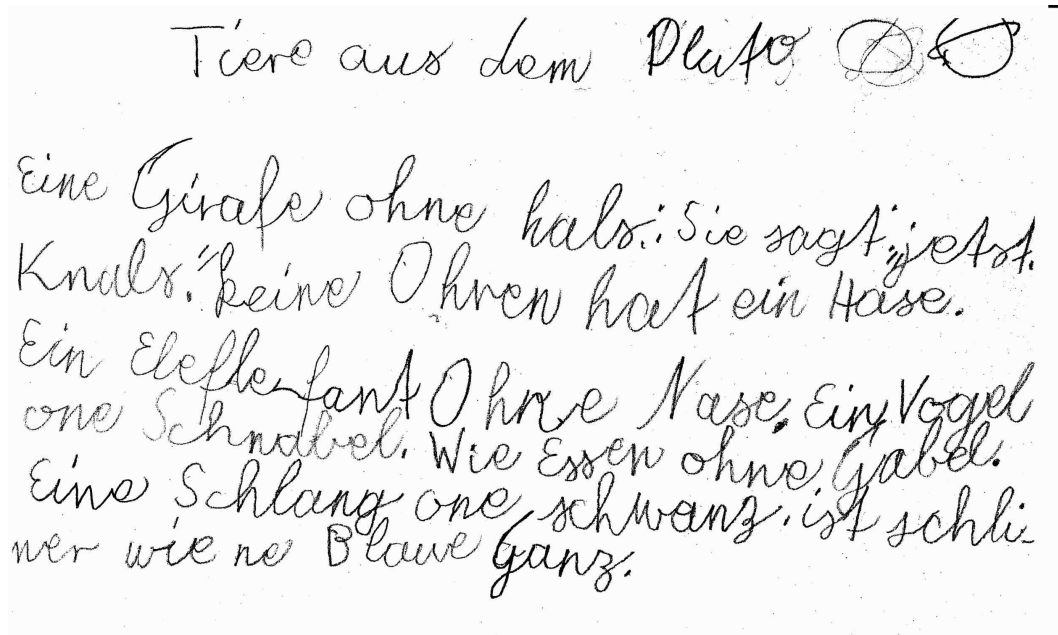 Tiere aus dem Pluto
Eine Girafe ohne hals: Sie sagt: "jetst.
Knals." keine Ohren hat ein Hase.
Ein Elefle-fant Ohne Nase. Ein Vogel
one Schnabel. Wie Essen ohne Gabel.
Eine Schlang one schwanz. ist schli-
mer wie ne Blaue Ganz.